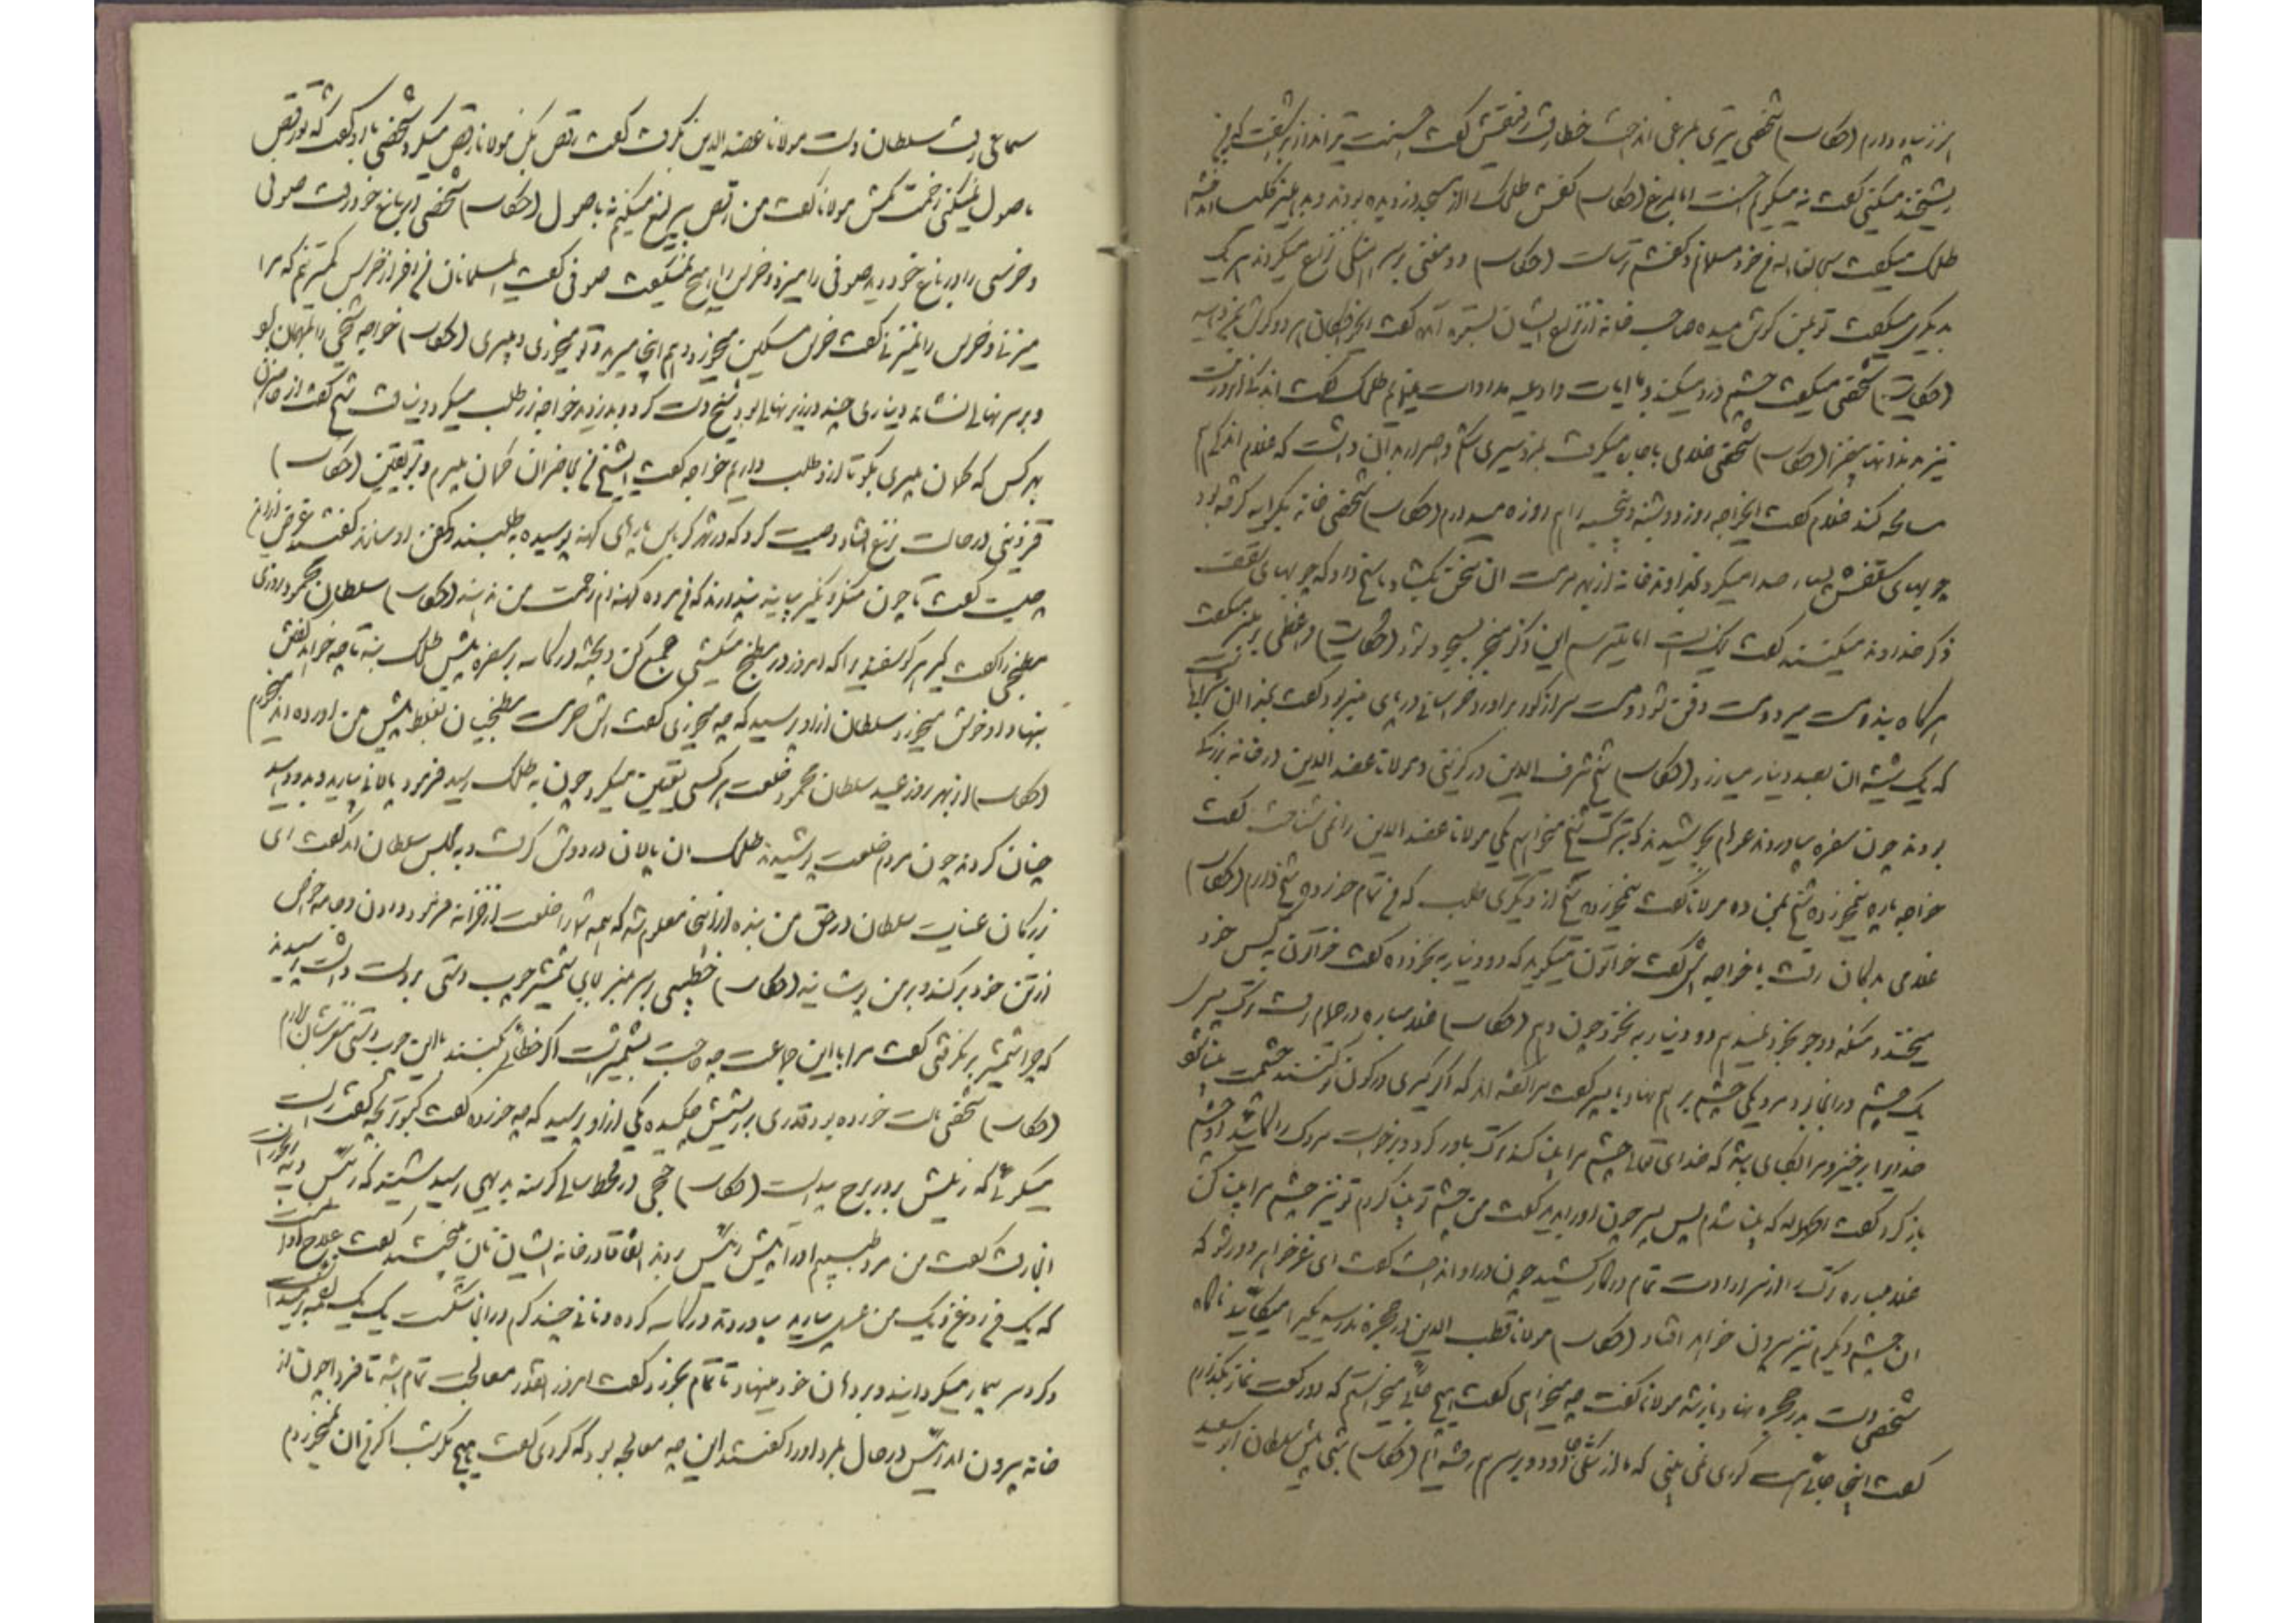 ارز پیاده دارم (حکایت) شخصی تیری بمرغی انداخت خطا رفت رفیقش گفت احسنت تیرانداز براشفت که بمن
ریشخند میکنی گفت نه میگویم احسنت اما بمرغ (حکایت) کفش طلحک را از مسجد دزدیده بودند و بدهلیز کلیسا انداخته
طلحک میگفت سبحان اله من خود مسلمانم و کفشم ترساست (حکایت) دو مغنی بر سر نزاع میکردند هر یک
بدیگری میگفت تو بمن گوش میده صاحب خانه از نزاع ایشان بستوه آمد گفت
(حکایت) شخصی میگفت چشمم درد میکند و با ایات و ادعیه مداوات مینمایم طلحک گفت اندکی انزروت
نیز بدانها بیفزا (حکایت) شخصی غلامی باجاره میگرفت بمزد سیری شکم و اصرار بدان داشت که غلام اندکی هم
مسامحه کند غلام گفت ایخواجه روز دوشنبه و پنجشنبه را هم روزه میدارم (حکایت) شخصی خانه بکرایه گرفته بود
چوبهای سقفش بسیار صدا میکرد بخداوند خانه از بهر مرمت ان سخن بگشاد پاسخ داد که چوبهای سقف
ذکر خداوند میکنند گفت نیک است اما میترسم این ذکر منجر بسجود شود (حکایت) واعظی بر منبر میگفت
هرگاه بنده مست میرد مست دفن شود و مست سر از گور براورد خراسانی در پای منبر بود گفت بخدا ان شرابیست
که یک شیشه ان بصد دینار میارزد (حکایت) شیخ شرف الدین درگزینی و مولانا عضد الدین در خانه بزرگی
بودند چون سفره بیاوردند عوام بجوشیدند که تبرک شیخ میخواهیم یکی مولانا عضد الدین را نمی شناخت گفت
خواجه پاره نیمخورده شیخ بمن ده مولانا گفت نیمخورده شیخ از دیگری طلب که من تمام خورده شیخ دارم (حکایت)
غلامی بدکان رفت با خواجه اش گفت خواتون میگوید که دو دینار به بخور ده گفت خواتون به کس خود
میخندد منکه دو جو بخور نمیدهم دو دینار به بخور چون دهم (حکایت) غلامباره در حمام رفت ترک پسری
یک چشم در انجا بود مرد یکی چشم بر هم نهاد با پسر گفت مرا گفته اند که اگر کیری در کونت کنند چشمت بینا شود
خدا را برخیز و مرا بگای باشد که خدای تعالی چشم مرا بینا کند ترک باور کرد و برخواست مردک را گائید او چشم
باز کرد گفت الحمد لله که بینا شدم پس پسر چون او را بدید گفت من چشم تو بینا کردم تو نیز چشم مرا بینا کن
غلامباره ترک را از سر ارادت تمام در کار کشید چون در او انداخت گفت ای غرخواهر دور شو که
ان چشم دیگرم نیز بیرون خواهد افتاد (حکایت) مولانا قطب الدین در حجره مدرسه یکی را میگائید ناگاه
شخصی دست بدر حجره نهاد باز شد مولانا گفت چه میخواهی گفت هیچ جائی میخواستم که دو رکعت نماز بگذارم
گفت اینجا جای هست کوری نمی بینی که ما از تنگی جا دو دو بر سر هم رفته ایم (حکایت) شبی پیش سلطان ابو سعید
سماعی رفت سلطان دست مولانا عضد الدین بگرفت گفت رقص بکن مولانا رقص میکرد شخصی با او گفت که تو رقص
باصول نمیکنی زحمت مکش مولانا گفت من رقص بیرلیغ میکنم نه باصول (حکایت) شخصی در باغ خود رفت صوفی
و خرسی را در باغ خود دید صوفی را میزد و خرس را هیچ نمیگفت صوفی گفت ای مسلمانان من اخر از خرس کمتر نیم که مرا
میزنی و خرس را نمیزنی گفت خرس مسکین میخورد و هم اینجا میرید و تو میخوری و میبری (حکایت) خواجه شیخی را بمهمان برد
و بر سر نهالی نشاند دیناری چند در زیر نهالی بود شیخ دست کرد و بدزدید خواجه زر طلب میکرد و نیافت شیخ گفت از حاضران
بهر کس که گمان میبری بگو تا ازو طلب داریم خواجه گفت ای شیخ من بحاضران گمان میبرم و بتو یقین (حکایت)
قزوینی در حالت نزع افتاد وصیت کرد که در شهر کرباس پارهای کهنه پوسیده طلبند و کفن او سازند گفتند غرض ازین
چیست گفت تا چون منکر و نکیر بیایند پندارند که من مرده کهنه ام زحمت من ندهند (حکایت) سلطان محمود روزی
مطبخی را گفت کیر هر گوسفندی را که امروز در مطبخ میکشی جمع کن و پخته در کاسه بر سفره پیش طلحک بنه تا چه خواهد گفت
بنهاد او خوش میخورد سلطان ازاو پرسید که چه میخوری گفت اش حرمست مطبخیان بغلط پیش من اورده اند میخورم
(حکایت) از بهر روز عید سلطان محمود خلعت هر کسی تعیین میکرد چون به طلحک رسید فرمود پالانی بیارید و بدو دهید
چنان کردند چون مردم خلعت پوشیدند طلحک ان پالان در دوش گرفت و به مجلس سلطان آمد گفت ای
بزرگان عنایت سلطان در حق من بنده ازاینجا معلوم شد که همه شما را خلعت از خزانه فرمود دادن و جامه خاص
از تن خود برکند و بر من پوشانید (حکایت) خطیبی بر سر منبر بجای شمشیر چوب دستی بدست داشت پرسیدند
که چرا شمشیر برنگرفتی گفت مرا با این جماعت چه حاجت بشمشیرست اگر خطائی بکنند با این چوب دستی مغزشان برارم
(حکایت) شخصی ماست خورده بود قدری بریشش چکیده یکی ازاو پرسید که چه خورده گفت کبوتر بچه گفت راست
میگوئی که زیلش بدر برج پیداست (حکایت) حجی در قحط سالی گرسنه بدیهی رسید شنید که رئیس دیه رنجور است
انجا رفت گفت من مرد طبیبم او را پیش رئیس بردند اتفاقا در خانه ایشان نان میپختند گفت علاج او انست
که یک من روغن و یک من عسل بیارید بیاوردند در کاسه کرد و نانی چند گرم در انجا شکست یک یک لقمه بر میداشت
و گرد سر بیمار میگردانید و بردهان خود مینهاد تا تمام بخورد گفت امروز اینقدر معالجت تمام باشد تا فردا چون از
خانه بیرون امد رئیس در حال بمرد او را گفتند این چه معالجه بود که کردی گفت هیچ مگوئید اگر من ان نمیخوردم